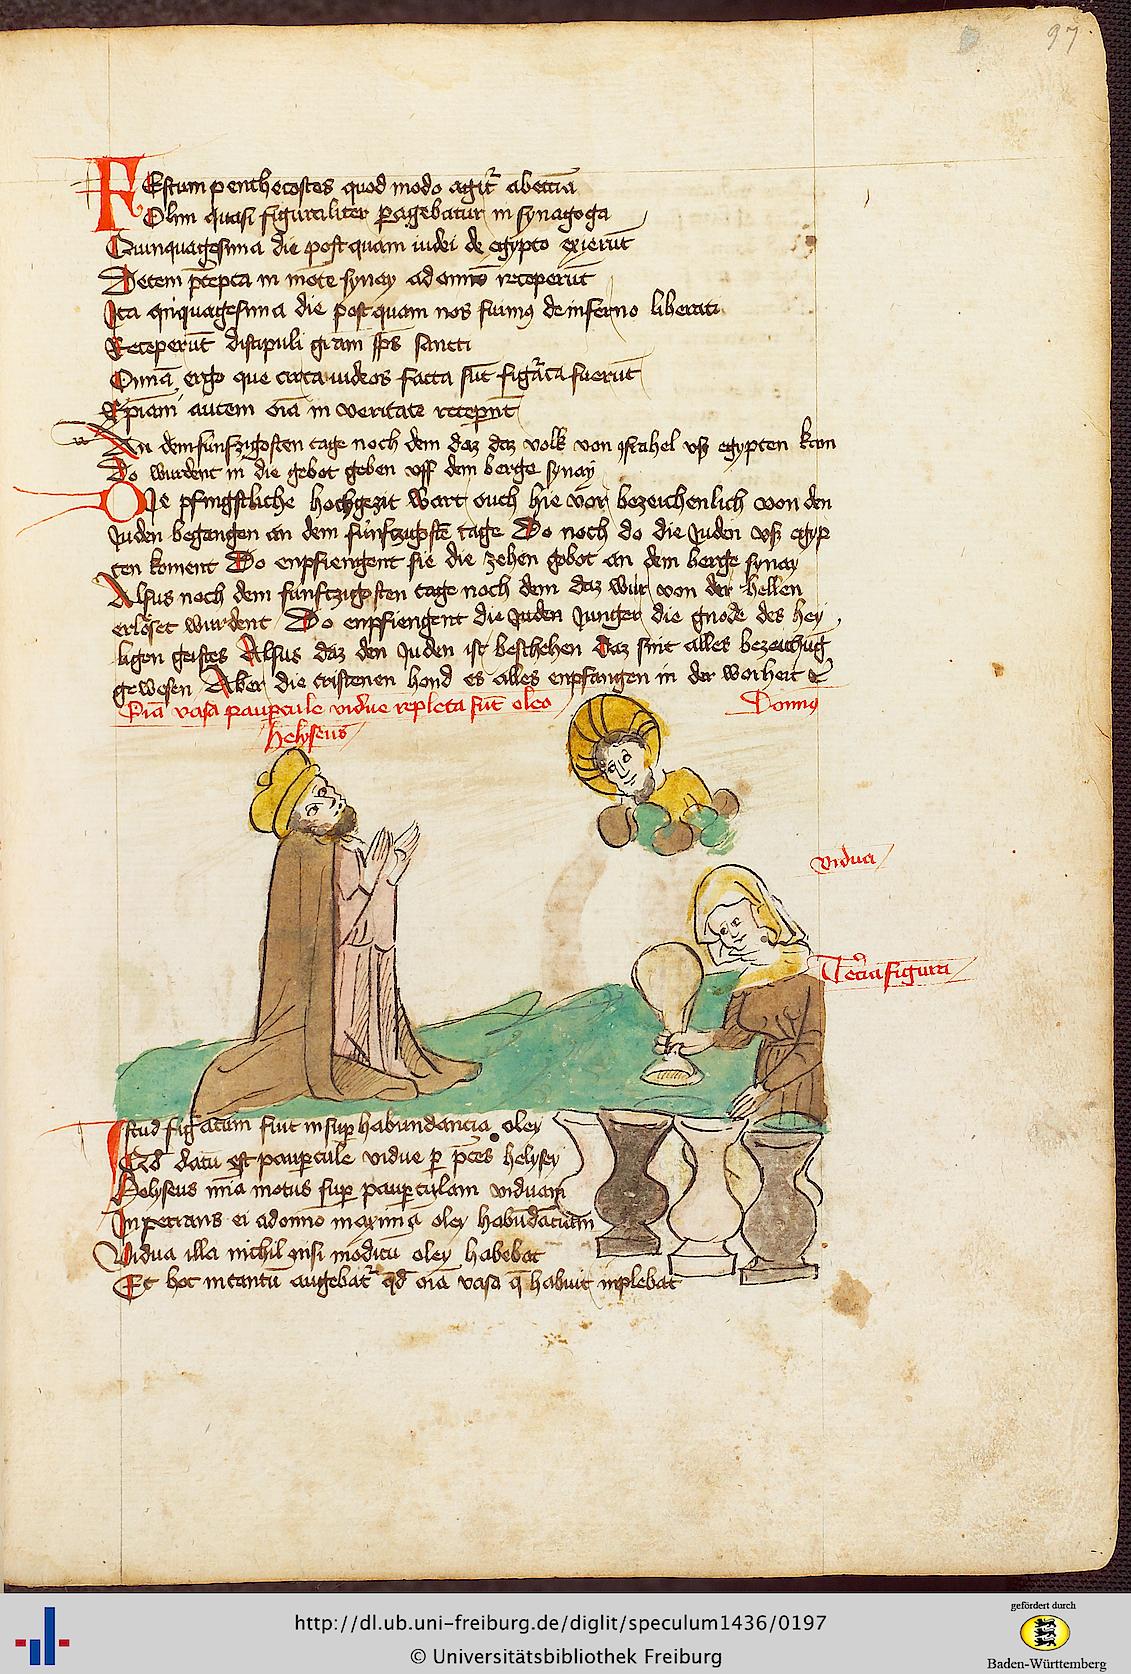 97
FEstum penthecostes quod modo agit᷑ ab ecc̄ia
Olim quasi figuraliter ꝑagebatur in synagoga
Quinquagesima die postquam iudei de egypto exierūt
Decem p̄cepta in mōte synay a dom̄o receperūt
Ita qn̄quagesima die postquam nos fuimꝰ de inferno liberati
Receperūt discipuli gr̄am sp̄s sancti
Omnia ergo que circa iudeos facta sūt figᷓata fuerūt
Xp̄iani autem oīa in veritate recepeṙt
An dem funfzigosten tage noch dem daz daz volk von jsrahel vß egypten kam
Do wurdent in die gebot geben vff dem berge synay
DIe pfingstliche hochgezit wart ouch hie vor bezeichenlich von den
Juden begangen an dem fúnftzigostē tage Do noch do die Juden vß egyp
ten koment Do enpfiengent sie die zehen gebot an dem berge synay
Alsus noch dem fúnftzigosten tage noch dem daz wur von der hellen
erlöset wurdent Do enpfiengent die Juden Junger die gnode des hey
ligen geistes Alsus daz den Juden ist beschehen Daz sint alles bezeichūg
gewesen Aber die cristenen hond es alles enpfangen in der worheit ⁊c̄
Oīa vasa paupercule vidue repleta sūt oleo
Domīꝰ
helyseus
vidua
Tercia figura
Istud figᷓatum fuit in suꝑhabundancia oley
Qd̄ datū est pauꝑcule vidue ꝑ p̄ces helysey
Helyseus mīa motus suꝑ pauꝑculam viduam
Inpetrans ei a domīo maximā oley habūdāciam
Vidua illa nichil nisi modicū oley habebat
Et hoc in tantū augebat᷑ qd̄ oīa vasa q̄ habuit inplebat
http://dl.ub.uni-freiburg.de/diglit/speculum1436/0197
© Universitätsbibliothek Freiburg
gefördert durch
Baden-Württemberg